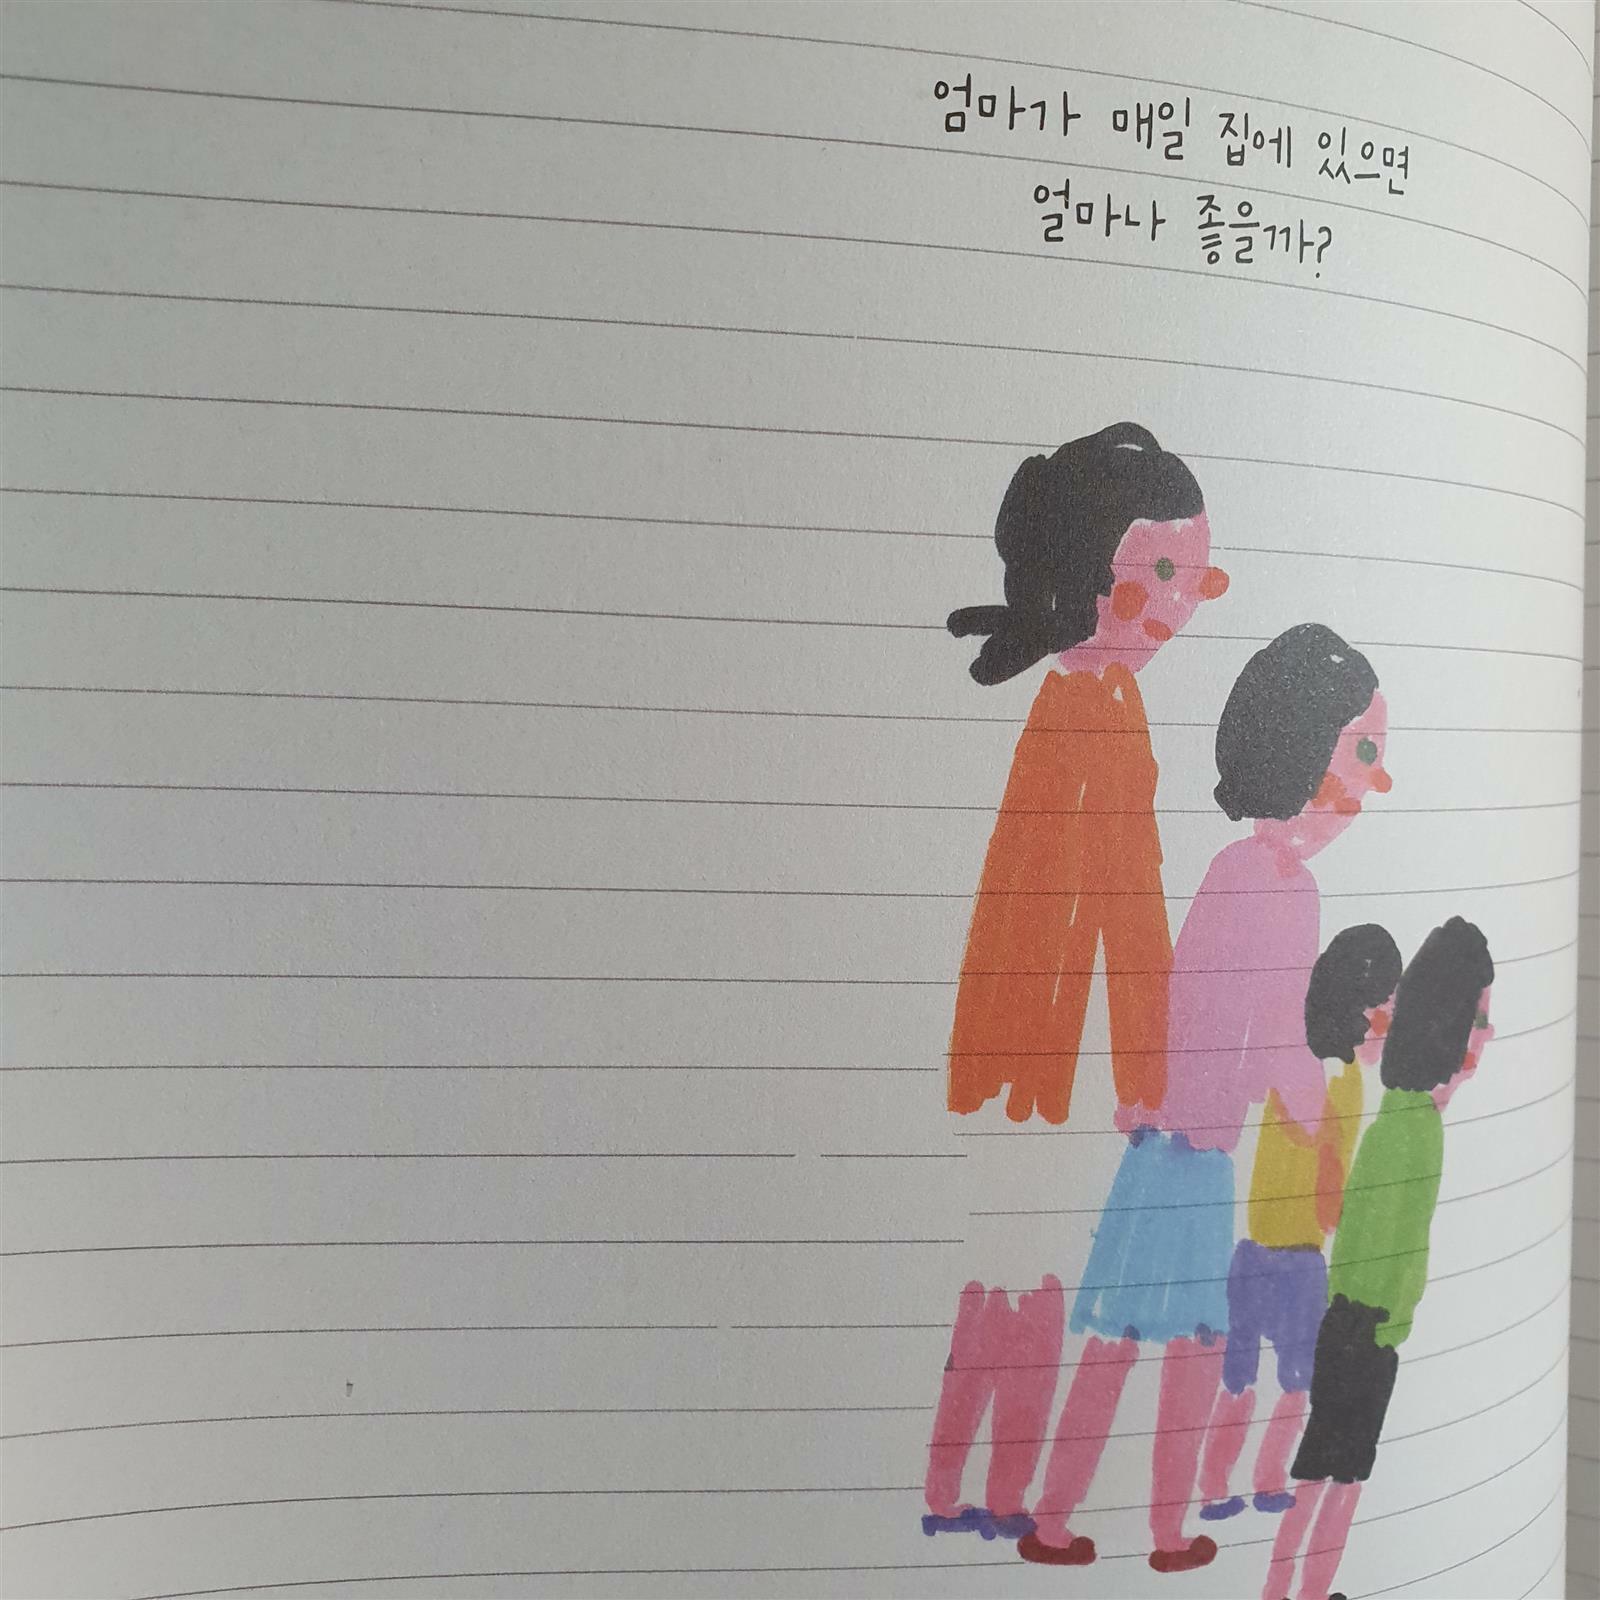 엄마가 매일 집에 있으면
얼마나 좋을까?